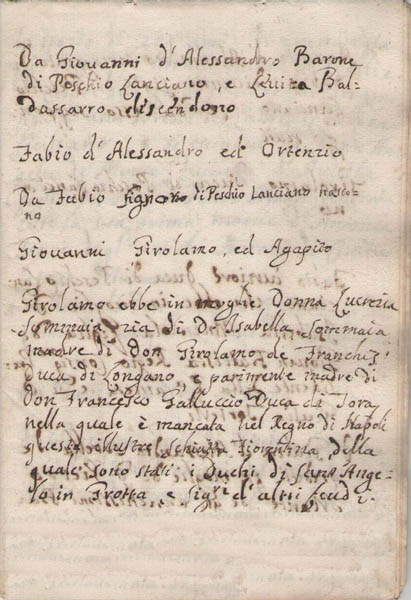 Da Giovanni d'Alessandro Barone
di Peschio Lanciano, e Livia Bal-
dassarro discendono
Fabio d'Alessandro ed Ortenzio
Da Fabio Sigre di Peschio Lanciano nasco-
no
Giovanni Girolamo, ed Agapito
Girolamo ebbe in moglie Donna Lucrezia
Sommaia zia di Da Isabella Sommaia
madre di Don Girolamo de Franchis
Duca di Longano, e parimente madre di
Don Francesco Galluccio Duca da Tora
nella quale è mancata nel Regno di Napoli
questa illustre schiatta Fiorentina, della
quale sono stati i Duchi di Sant'Ange-
lo in Grotta e Sigri d'altri feudi.